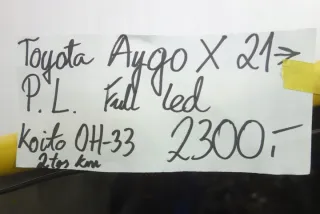 Toyota Aygo X 21→
P. L. Full led
Koito OH-33 2300,-